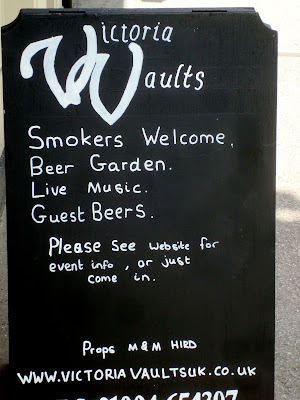 Victoria
Vaults
Smokers Welcome,
Beer Garden.
Live Music.
Guest Beers.
Please See Website for
event info, or just
come in.
Props M & M HIRD
WWW.VICTORIAVAULTSUK.CO.UK
01904 654307